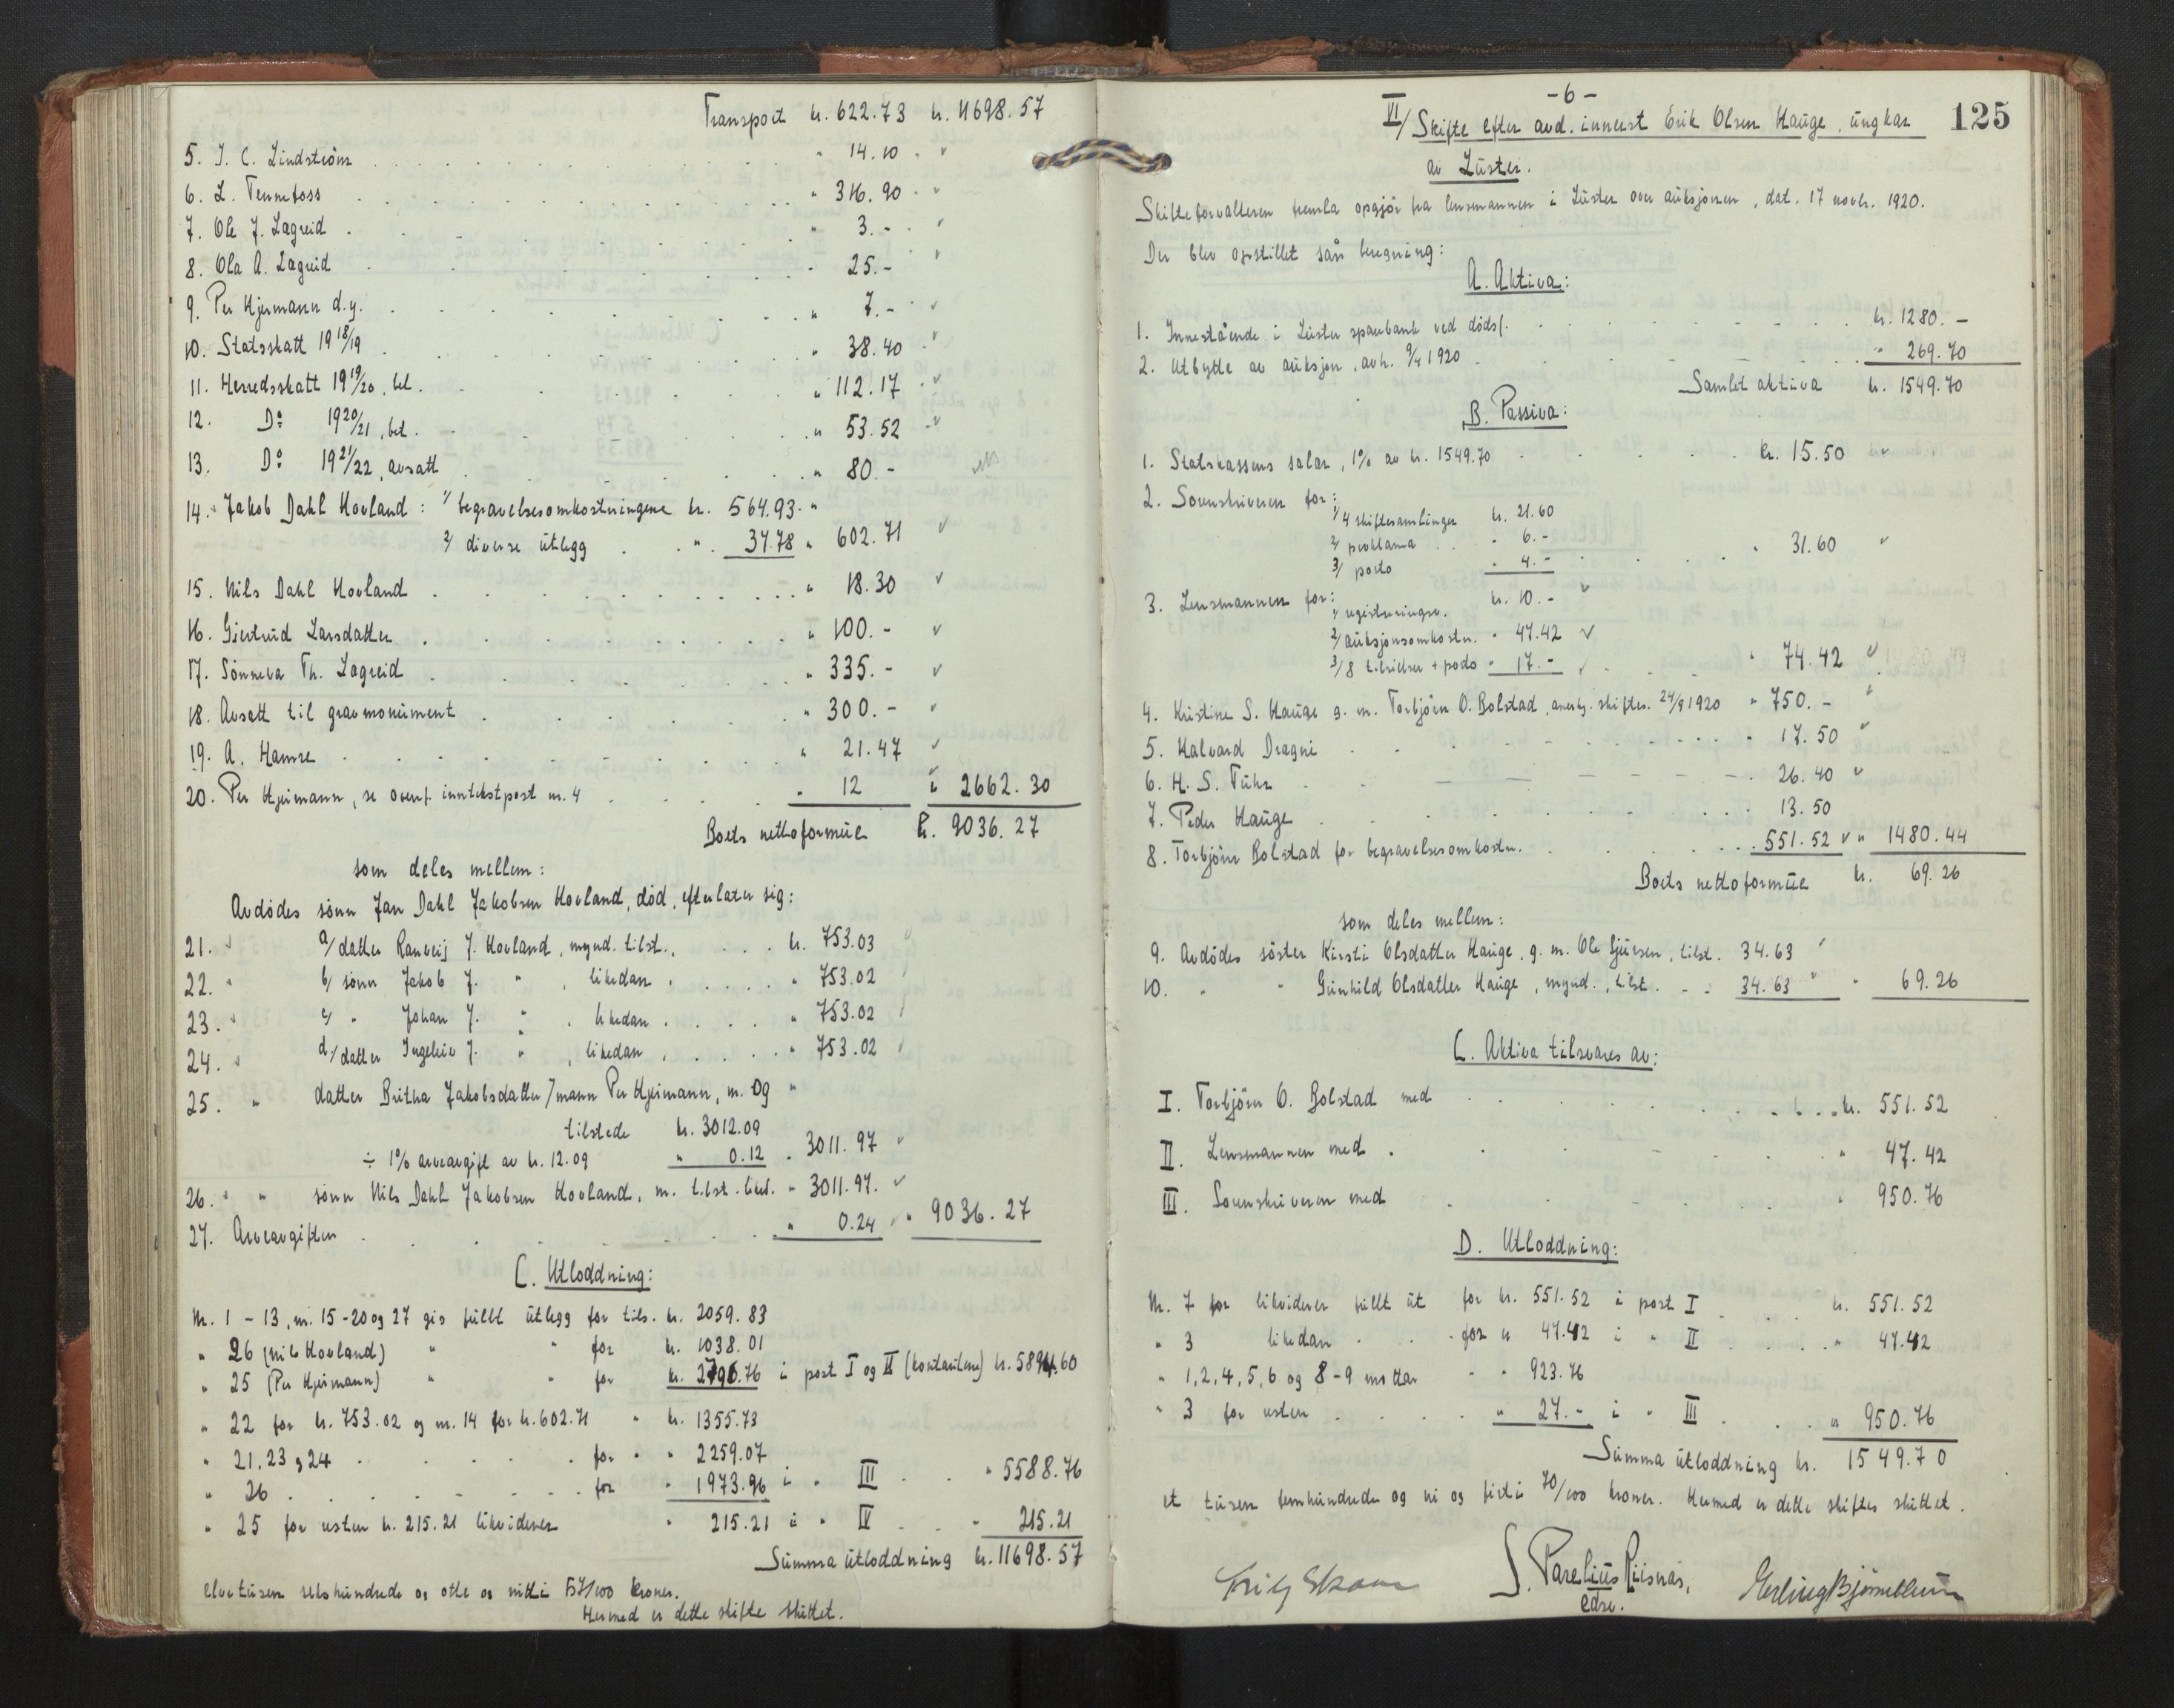 Transport kr. 622.73 kr. 11698.57
5. J. C. Lindström . . . " 14.10 "
6. L. Tennefoss . . . " 316.90 "
7. Ole J. Lagreid . . . " 3.- "
8. Ola A. Lagreid . . . " 25.- "
9. Per Hjermann d.y. . . . " 7.- "
10. Statsskatt 19 18/19 . . . " 38.40 "
11. Herredsskatt 19 19/20, bet. . . . " 112.17 "
12. Do 19 20/21, bet. . . . " 53.52 "
13. Do 19 21/22, avsatt . . . " 80.-
14. Jakob Dahl Hovland: 1/ begravelsesomkostningene kr. 564.93 "
2/ diverse utlegg . . " 37.78 " 602.71
15. Nils Dahl Hovland . . . " 18.30
16. Gjertrud Larsdatter . . . " 100.-
17. Sönneva Th. Lagreid . . . " 335.-
18. Avsatt til gravmonument . . . " 300.-
19. A. Hamre . . . " 21.47
20. Per Hjermann, se ovenf. inntektspost nr. 4 . . . " 12 " 2662.30
Boets nettoformue kr. 9036.27
som deles mellem:
Avdödes sönn Jan Dahl Jakobsen Hovland, död, efterlater sig:
21. " a/ datter Ranveig J. Hovland, mynd. tilst., . . . kr. 753.03
22. " b/ sönn Jakob J. " , likedan . . . " 753.02
23. " c/ " Johan J. " , likedan . . . " 753.02
24. " d/ datter Ingeleiv J. " , likedan, . . . " 753.02
25. " datter Britha Jakobsdatter / mann Per Hjermann, m. og "
tilstede kr. 3012.09
÷ 1% arveavgift av kr. 12.09 " 0.12 " 3011.97
26. " " sönn Nils Dahl Jakobsen Hovland, m. tilst. liked. " 3011.97.
27. Arveavgiften . . . " 0.24 " 9036.27
C. Utloddning:
Nr. 1 - 13, nr. 15-20 og 27 gis fullt utlegg for tils. kr. 2059.83
" 26 (Nils Hovland) " " for kr. 1038.01
" 25 (Per Hjermann) " " for kr. 2796.76 i post I og II (kontantene) kr. 5894.60
" 22 for kr. 753.02 og nr. 14 for kr. 602.71 " kr. 1355.73
" 21, 23 og 24 . . . for " " 2259.07
" 26 . . . for " 1973.96 i " III . . " 5588.76
" 25 for resten kr. 215.21 likviderer " 215.21 i " IV . . " 215.21
Summa utloddning kr. 11698.57
elvetusen sekshundrede og otte og nitti 57/100 kroner.
Hermed er dette skifte sluttet.
- 6 -
125
VI/ Skifte efter avd. innerst Erik Olsen Hauge, ungkar
av Luster.
Skifteforvalteren fremla opgjör fra lensmannen i Luster over auksjonen, dat. 17 novbr. 1920.
Der blev opstillet sån beregning:
A. Aktiva:
1. Innestående i Luster sparebank ved dödsf. . . . kr. 1280.-
2. Utbytte av auksjon, avh. 9/4 1920 . . . " 269.70
Samlet aktiva kr. 1549.70
B. Passiva:
1. Statskassens salar, 1% av kr. 1549.70 . . . kr. 15.50 "
2. Sorenskriveren for:
1/ 4 skiftesamlinger kr. 21.60
2/ proklama . . " 6.-
3/ porto " 4.- . . . " 31.60
3. Lensmannen for:
1/ registreringen. kr. 10.-
2/ auksjonsomkostn. " 47.42
3/ 8 tilsielser + porto " 17.- . . . " 74.42
4. Kristine S. Hauge g. m. Torbjörn O. Bolstad, anerkj. skiftes. 24/9 1920 " 750.-
5. Halvard Dragni . . . " 17.50
6. H. S. Fuhr . . . " 26.40
7. Peder Hauge . . . 13.50
8. Torbjörn Bolstad for begravelsesomkostn. . . . 551.52 " 1480.44
Boets nettoformue kr. 69.26
som deles mellem:
9. Avdödes söster Kirsti Olsdatter Hauge, g. m. Ole Sjursen, tilst. 34.63
10. " " Gunhild Olsdatter Hauge, mynd., tilst. . . 34.63 " 69.26
C. Aktiva tilsvares av:
I. Torbjörn O. Bolstad med . . . kr. 551.52
II. Lensmannen med . . . " 47.42
III. Sorenskriveren med . . . " 950.76
D. Utloddning:
Nr. 7 for likviderer fullt ut for kr. 551.52 i post I . . . kr. 551.52
" 3 likedan . . . for " 47.42 i " II . . . " 47.42
" 1, 2, 4, 5, 6 og 8-9 mottar " " 923.76
" 3 for resten . . . " 27.- i " III . . . " 950.76
Summa utloddning kr. 1549.70
et tusen femhundrede og ni og firti 70/100 kroner. Hermed er dette skiftes sluttet.
S. Parelius Riisnæs,
edsv.
Erling Bjørnethun